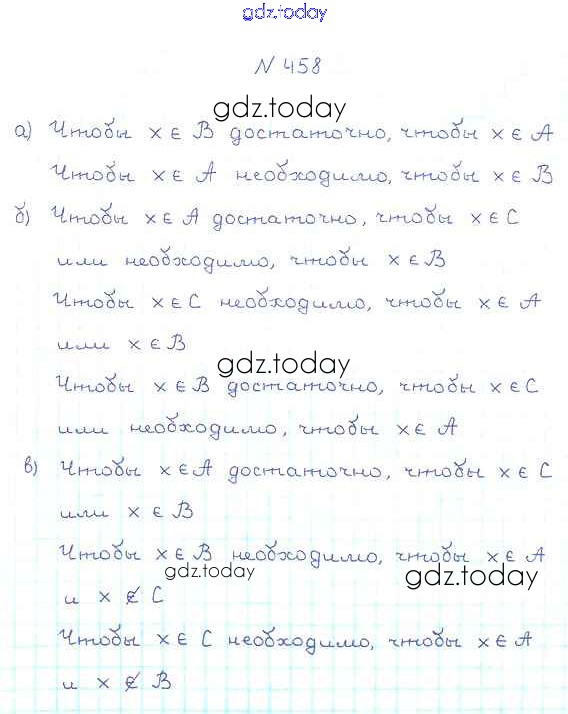 gdz.today
N 458
gdz.today
а) Чтобы x ∈ B достаточно, чтобы x ∈ A
Чтобы x ∈ A необходимо, чтобы x ∈ B
б) Чтобы x ∈ A достаточно, чтобы x ∈ C
или необходимо, чтобы x ∈ B
Чтобы x ∈ C необходимо, чтобы x ∈ A
или x ∈ B
gdz.today
Чтобы x ∈ B достаточно, чтобы x ∈ C
или необходимо, чтобы x ∈ A
в) Чтобы x ∈ A достаточно, чтобы x ∈ C
или x ∈ B
Чтобы x ∈ B необходимо, чтобы x ∈ A
gdz.today
gdz.today
и x ∉ C
Чтобы x ∈ C необходимо, чтобы x ∈ A
и x ∉ B